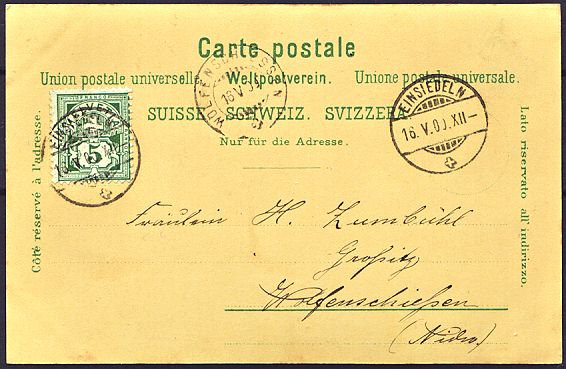 Carte postale
Union postale universelle. Weltpostverein. Unione postale universale.
SUISSE. SCHWEIZ. SVIZZERA.
Nur für die Adresse.
Côté réservé à l'adresse.
Lato riservato all'indirizzo.
EINSIEDELN
16.V.00.XII-
WOLFENSCH
16.V.00
5
Fräulein H. Zumbühl
Großitz
Wolfenschießen
(Nidw.)